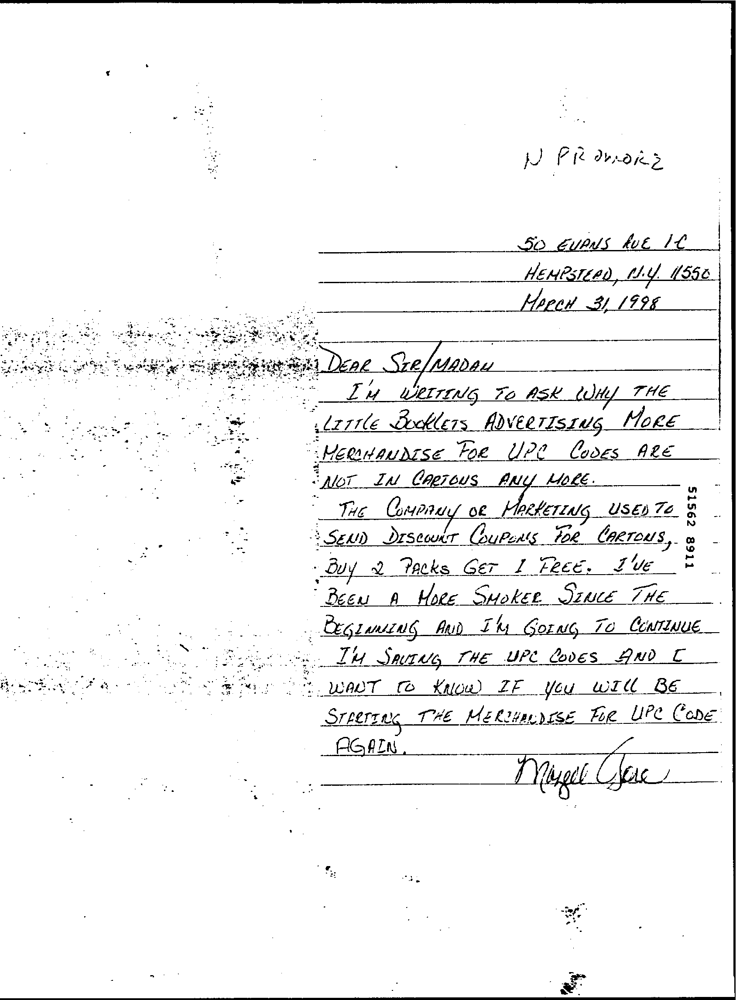 50 EVANS AVE 1-C
HEMPSTEAD, N.Y. 11550
MARCH 31, 1998
DEAR SIR/MADAM
I'M WRITING TO ASK WHY THE
LITTLE BOOKLETS ADVERTISING MORE
MERCHANDISE FOR UPC CODES ARE
NOT IN CARTONS ANY MORE.
THE COMPANY OR MARKETING USED TO
SEND DISCOUNT COUPONS FOR CARTONS,
BUY 2 PACKS GET 1 FREE. I'VE
BEEN A MORE SMOKER SINCE THE
BEGINNING AND I'M GOING TO CONTINUE
I'M SAVING THE UPC CODES AND I
WANT TO KNOW IF YOU WILL BE
STARTING THE MERCHANDISE FOR UPC CODE
AGAIN.
51562 8911